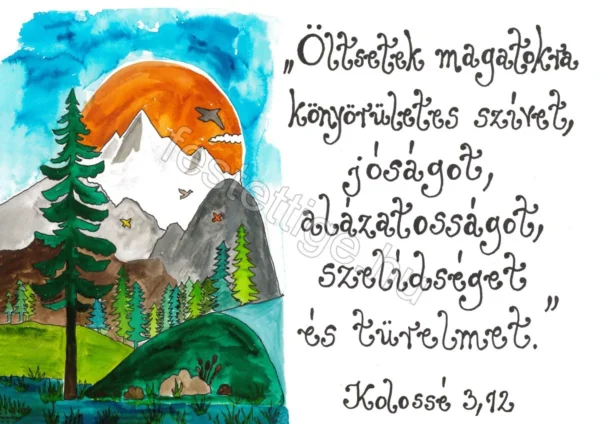 „Öltsetek magatokra
könyörületes szívet,
jóságot,
alázatosságot,
szelídséget
és türelmet.”
Kolossé 3,12
festettige.hu